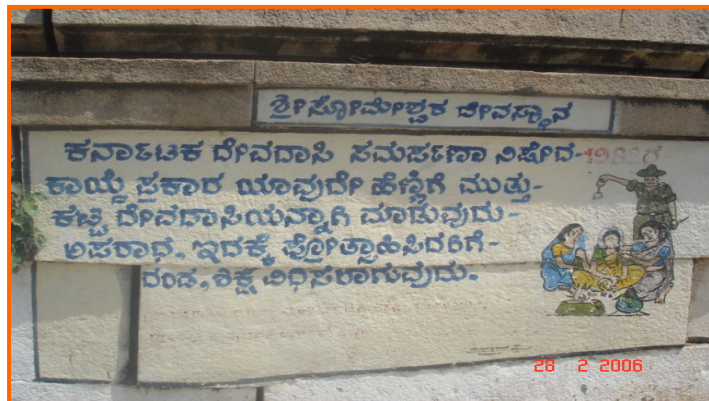 ಶ್ರೀ ಸೋಮೇಶ್ವರ ದೇವಸ್ಥಾನ
ಕರ್ನಾಟಕ ದೇವದಾಸಿ ಸಮರ್ಪಣಾ ನಿಷೇದ-1982ರ
ಕಾಯ್ದೆ ಪ್ರಕಾರ ಯಾವುದೇ ಹೆಣ್ಣಿಗೆ ಮುತ್ತು-
ಕಟ್ಟಿ ದೇವದಾಸಿಯನ್ನಾಗಿ ಮಾಡುವುದು-
ಅಪರಾಧ. ಇದಕ್ಕೆ ಪ್ರೋತ್ಸಾಹಿಸಿದರಿಗೆ-
ದಂಡ, ಶಿಕ್ಷೆ ವಿಧಿಸಲಾಗುವುದು-
28 2 2006